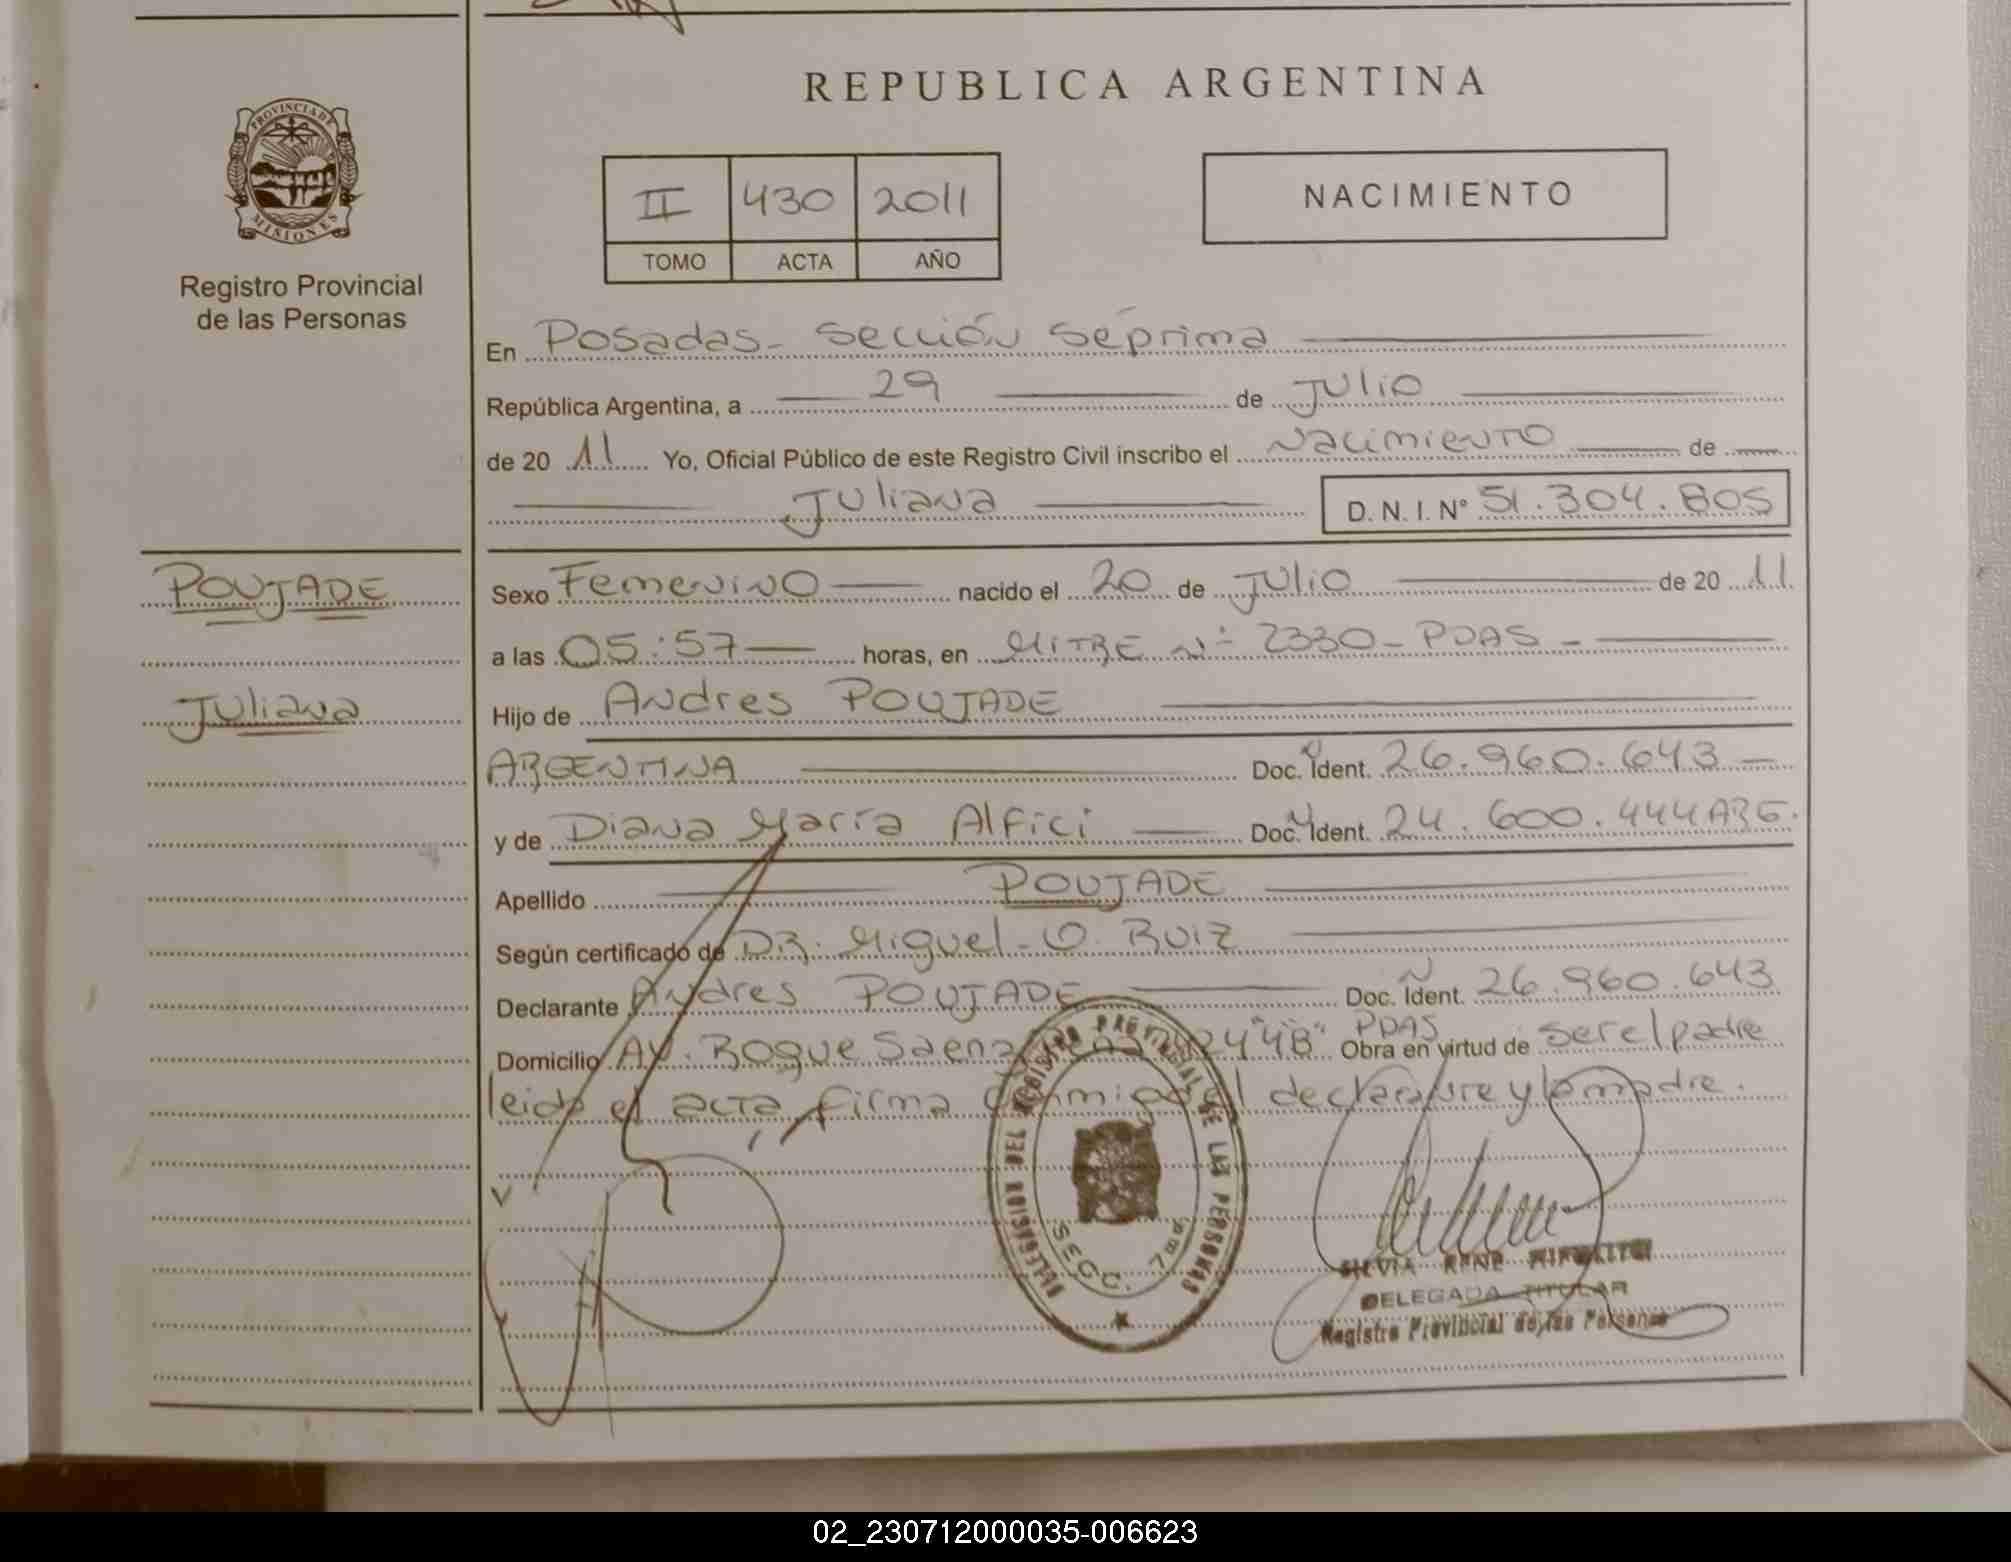 REPUBLICA ARGENTINA
PROVINCIA DE
MISIONES
Registro Provincial
de las Personas
II 430 2011
TOMO ACTA AÑO
NACIMIENTO
En Posadas - Sección Séprima
República Argentina, a 29 de Julio
de 20 11 Yo, Oficial Público de este Registro Civil inscribo el Nacimiento de
Juliana D. N. I. Nº 51.304.805
POUJADE
Juliana
Sexo Femenino nacido el 20 de Julio de 20 11
a las 05:57 horas, en MITRE Nº 2330 - PDAS -
Hijo de Andres POUJADE
ARGENTINA Doc. Ident. 26.960.643
y de Diana María Alfici Doc. Ident. 24.600.444 ARG.
Apellido POUJADE
Según certificado de DR. Miguel - O. Ruiz
Declarante Andres POUJADE Doc. Ident. 26.960.643
Domicilio Av. Roque Saenz PDAS Obra en virtud de ser el padre
leida el acta, firma declarante y la madre.
DELEGACION DEL REGISTRO PROVINCIAL DE LAS PERSONAS
SECC. 7ma
SILVIA
DELEGADA TITULAR
Registro Provincial de las Personas
02_230712000035-006623